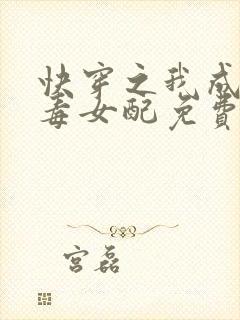 快穿之我成
毒女配免费
宫磊